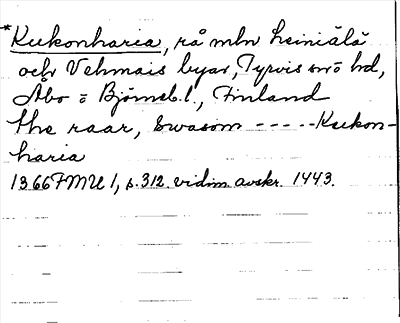 *Kukonharia, rå mln Leiniälä
och Vehmais byar, Tyrvis sn o hd,
Åbo o Björneb. l., Finland
the raar, swasom ----- Kukon-
haria
1366 FMU 1, s. 312. vidim. avskr. 1443.